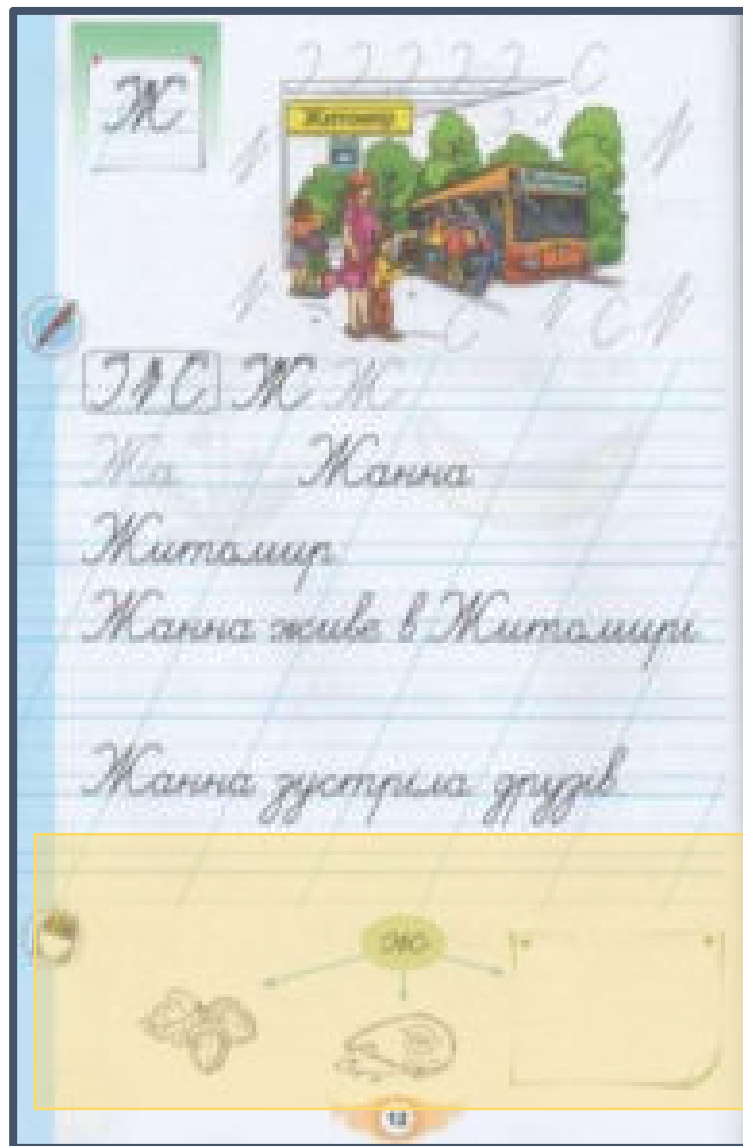 Ж
Житомир
Ж Ж
Жа Жанна
Житомир
Жанна живе в Житомирі.
Жанна зустріла друзів.
ж
12